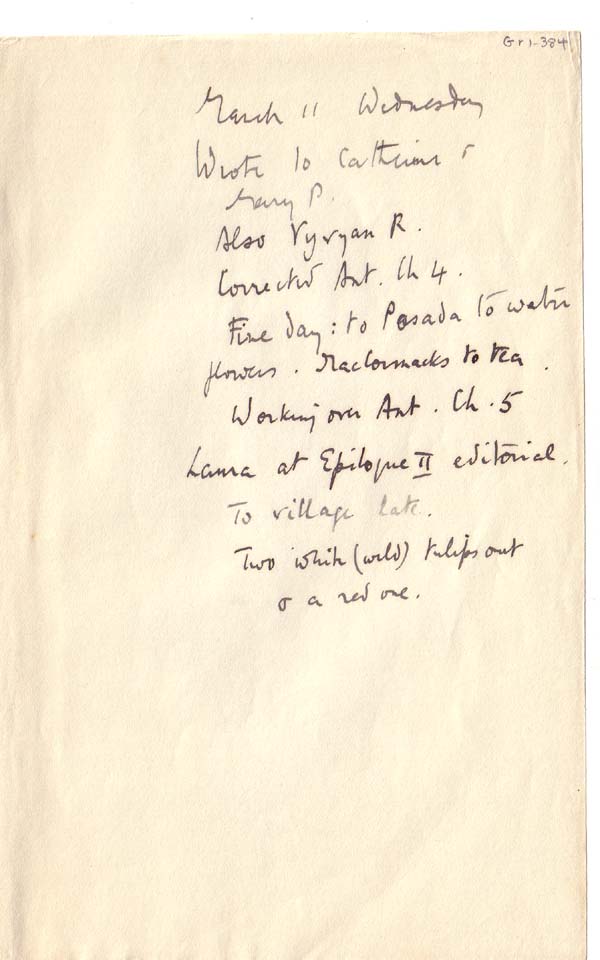 Gr1-384
March 11 Wednesday
Wrote to Catherine &
Mary P.
Also Vyvyan R.
Corrected Ant. Ch 4.
Fine day: to Posada to water
flowers. MacCormacks to tea.
Working over Ant. Ch. 5
Laura at Epilogue II editorial.
To village late.
Two white (wild) tulips out
& a red one.